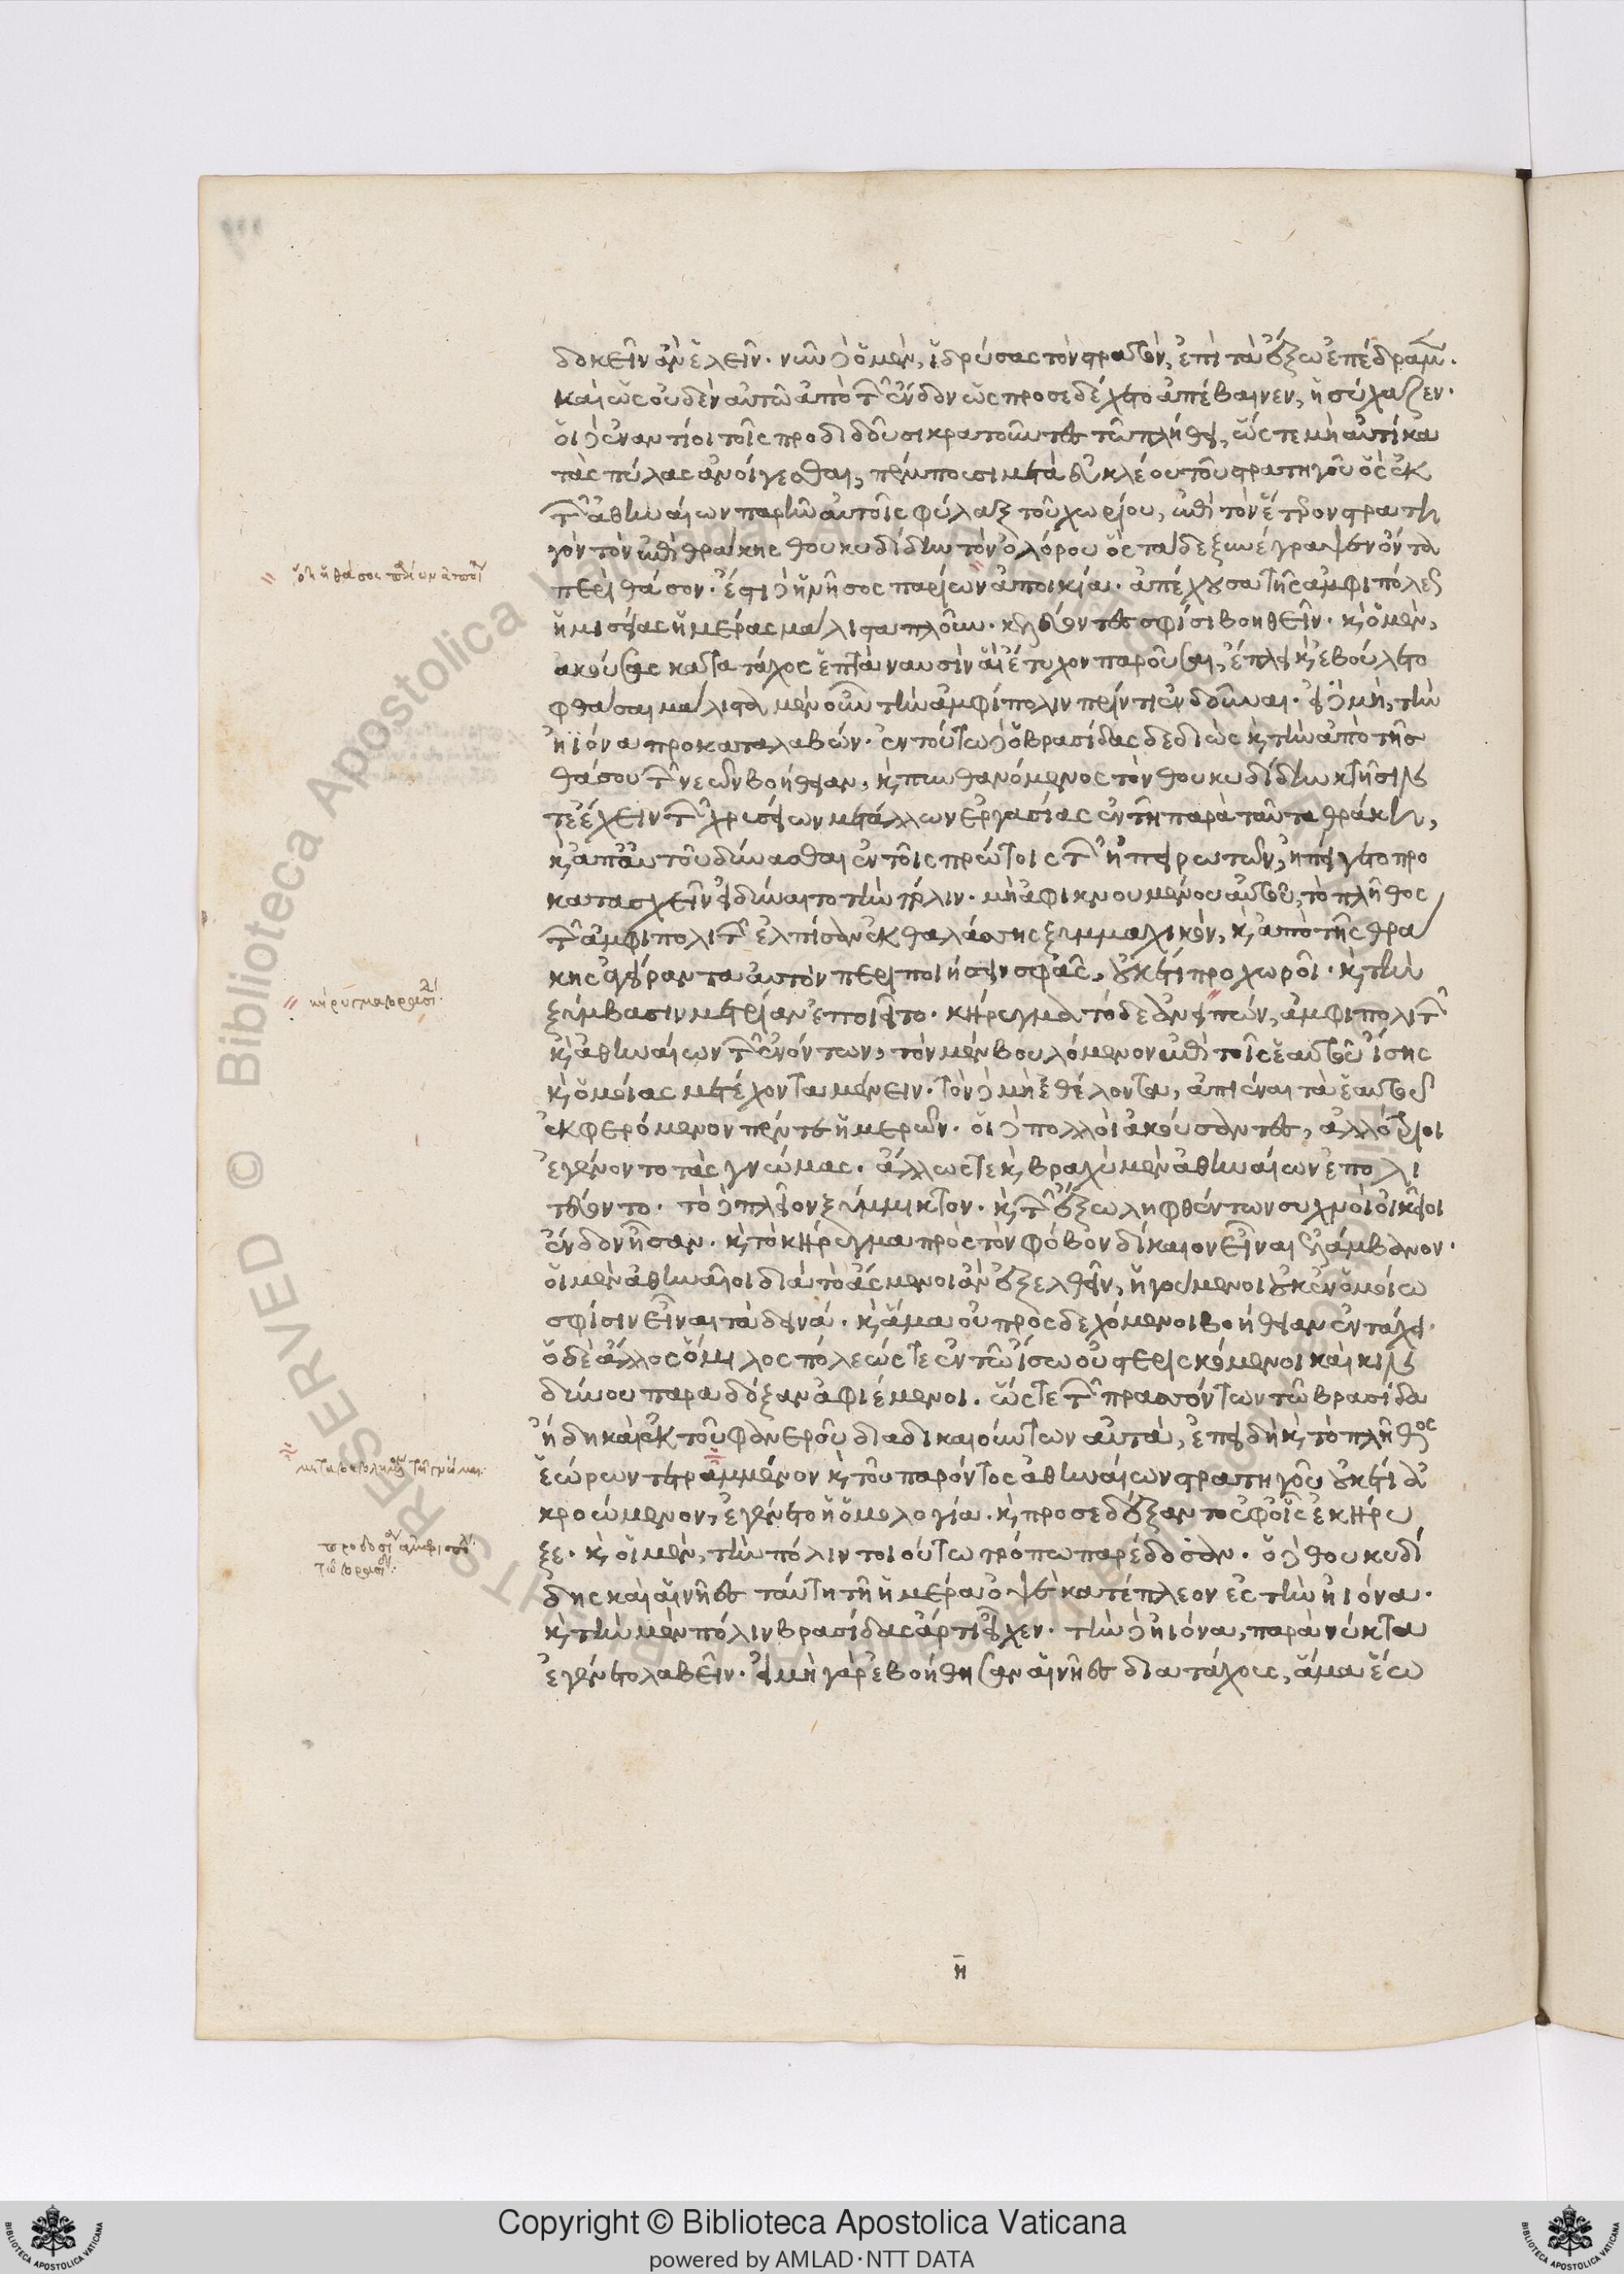 δοκεῖν ἂν ἑλεῖν. νῦν δὲ ὁ μὲν, ἱδρύσας τὸν στρατὸν, ἐπὶ τὰ ἔξω ἐπέδραμε.
καὶ ὡς οὐδὲν αὐτῶ ἀπὸ τῶν ἔνδον ὡς προσεδέχετο ἀπέβαινεν, ἡσύχαζεν.
οἱ δὲ ἐναντίοι τοῖς προδιδοῦσι κρατοῦντες τῶ πλήθει, ὥστε μὴ αὐτίκα
τὰς πύλας ἀνοίγεσθαι, πέμπουσι μετὰ εὐκλέους τοῦ στρατηγοῦ ὃς ἐκ
τῶν ἀθηναίων παρῆν αὐτοῖς φύλαξ τοῦ χωρίου, ἐπὶ τὸν ἕτερον στρατη
γὸν τὸν ἐπὶ θράκης θουκυδίδην τὸν ὀλόρου ὃς τάδε ξυνέγραψεν ὄντα
περὶ θάσον. ἔστι δὲ ἡ νῆσος παρίων ἀποικία. ἀπέχουσα τῆς ἀμφιπόλεως
ἡμισείας ἡμέρας μάλιστα πλοῦν. κελεύοντες σφίσι βοηθεῖν. καὶ ὁ μὲν,
ἀκούσας κατὰ τάχος ἑπτὰ ναυσὶν αἳ ἔτυχον παροῦσαι, ἔπλει καὶ ἐβούλετο
φθάσαι μάλιστα μὲν οὖν τὴν ἀμφίπολιν πρίν τι ἐνδοῦναι. εἰ δὲ μὴ, τὴν
ἠϊόνα προκαταλαβών. ἐν τούτω δὲ ὁ βρασίδας δεδιὼς καὶ τὴν ἀπὸ τῆς
θάσου τῶν νεῶν βοήθειαν, καὶ πυνθανόμενος τὸν θουκυδίδην κτῆσίν
τε ἔχειν τῶν χρυσείων μετάλλων ἐργασίας ἐν τῆ παρὰ ταῦτα θράκη,
καὶ ἀπ' αὐτοῦ δύνασθαι ἐν τοῖς πρώτοις τῶν ἠπειρωτῶν, ἠπείγετο προ
κατασχεῖν εἰ δύναιτο τὴν πόλιν. μὴ ἀφικνουμένου αὐτοῦ, τὸ πλῆθος
τῶν ἀμφιπολιτῶν ἐλπίσαν ἐκ θαλάσσης ξυμμαχικὸν, καὶ ἀπὸ τῆς θρά
κης ἀγείραντα αὐτὸν περιποιήσειν σφᾶς, οὐκέτι προχωροῖ. καὶ τὴν
ξύμβασιν μετρίαν ἐποιεῖτο. κήρυγμα τόδε ἀνειπών, ἀμφιπολιτῶν
καὶ ἀθηναίων τῶν ἐνόντων, τὸν μὲν βουλόμενον ἐπὶ τοῖς ἑαυτοῦ ἴσης
καὶ ὁμοίας μετέχοντα μένειν. τὸν δὲ μὴ ἐθέλοντα, ἀπιέναι τὰ ἑαυτοῦ
ἐκφερόμενον πέντε ἡμερῶν. οἱ δὲ πολλοὶ ἀκούσαντες, ἀλλότριοι
ἐγένοντο τὰς γνώμας. ἄλλως τε καὶ βραχὺ μὲν ἀθηναίων ἐπολι
τεύοντο. τὸ δὲ πλεῖον ξύμμικτον. καὶ τῶν ἔξω ληφθέντων συχνοὶ οἰκεῖοι
ἔνδον ἦσαν. καὶ τὸ κήρυγμα πρὸς τὸν φόβον δίκαιον εἶναι ἐλάμβανον.
οἱ μὲν ἀθηναῖοι διὰ τὸ ἄσμενοι ἂν ἐξελθεῖν, ἡγούμενοι οὐκ ἐν ὁμοίω
σφίσιν εἶναι τὰ δεινά. καὶ ἅμα οὐ προσδεχόμενοι βοήθειαν ἐν τάχει.
ὁ δὲ ἄλλος ὅμιλος πόλεώς τε ἐν τῶ ἴσω οὐ στερισκόμενοι καὶ κιν
δύνου παρὰ δόξαν ἀφιέμενοι. ὥστε τῶν πρασσόντων τῶ βρασίδα
ἤδη καὶ ἐκ τοῦ φανεροῦ διαδικαιούντων αὐτά, ἐπειδὴ καὶ τὸ πλῆθος
ἑώρων τετραμμένον καὶ τοῦ παρόντος ἀθηναίων στρατηγοῦ οὐκέτι ἀ
κροώμενον, ἐγένετο ἡ ὁμολογία. καὶ προσεδέξαντο ἐφ' οἷς ἐκήρυ
ξε. καὶ οἱ μὲν, τὴν πόλιν τοιούτω τρόπω παρέδοσαν. ὁ δὲ θουκυδί
δης καὶ αἱ νῆες ταύτη τῆ ἡμέρα ὀψὲ κατέπλεον ἐς τὴν ἠιόνα.
καὶ τὴν μὲν πόλιν βρασίδας ἄρτι εἶχεν. τὴν δὲ ἠιόνα, παρὰ νύκτα
ἐγένετο λαβεῖν. εἰ μὴ γὰρ ἐβοήθησαν αἱ νῆες διὰ τάχους, ἅμα ἕω
ὅτι ἡ θάσος παρίων ἀποικία
κήρυγμα βρασίδου
η
Copyright © Biblioteca Apostolica Vaticana
powered by AMLAD·NTT DATA